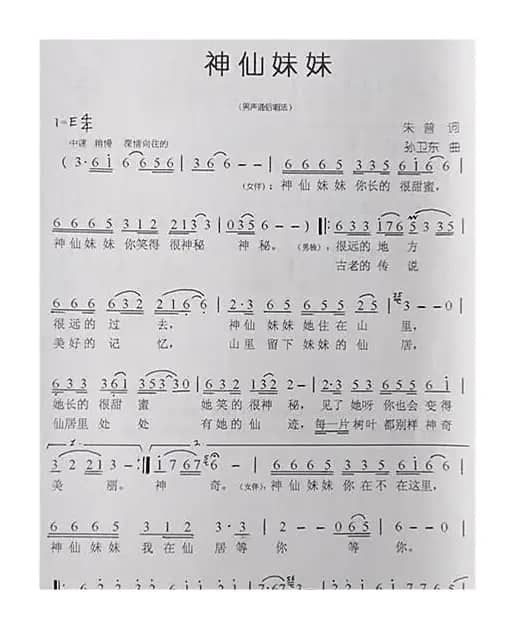 神仙妹妹
(男声通俗唱法)
1=E 4/4
朱普 词
中速 稍慢 深情向往的
孙卫东 曲
(3·6i 6656 | 366-- | 6665 335 6i66 |
(女伴):神仙妹妹 你长的 很甜蜜,
6665 312 2133 | 0356--) ‖: 633 i765 335 |
神仙妹妹 你笑得 很神秘 神秘。 (男独):很远的 地方
古老的 传说
666 632 2166 | 2·3 65 665 25 | 3--0 |
很远的 过 去, 神仙妹妹她住在山 里,
美好的 记 忆, 山里留下妹妹的仙 居,
633 36i 353330 | 632 132 2- | 2·3 53 6655 6i |
她长的 很甜 蜜 她笑的 很神秘, 见了她呀 你也会 变得
仙居里 处处 有她的 仙 迹, 每一片 树叶 都别样 神奇
1. 2.
3 2 213- :‖ i7676- | 6665 6665 6i66 |
美 丽。 神 奇。 (女伴):神仙妹妹 你在不 在这里,
6665 3i 3·3 | 2--2- | 065 | 6--0 |
神仙妹妹 我在仙 居等 你 等 你。